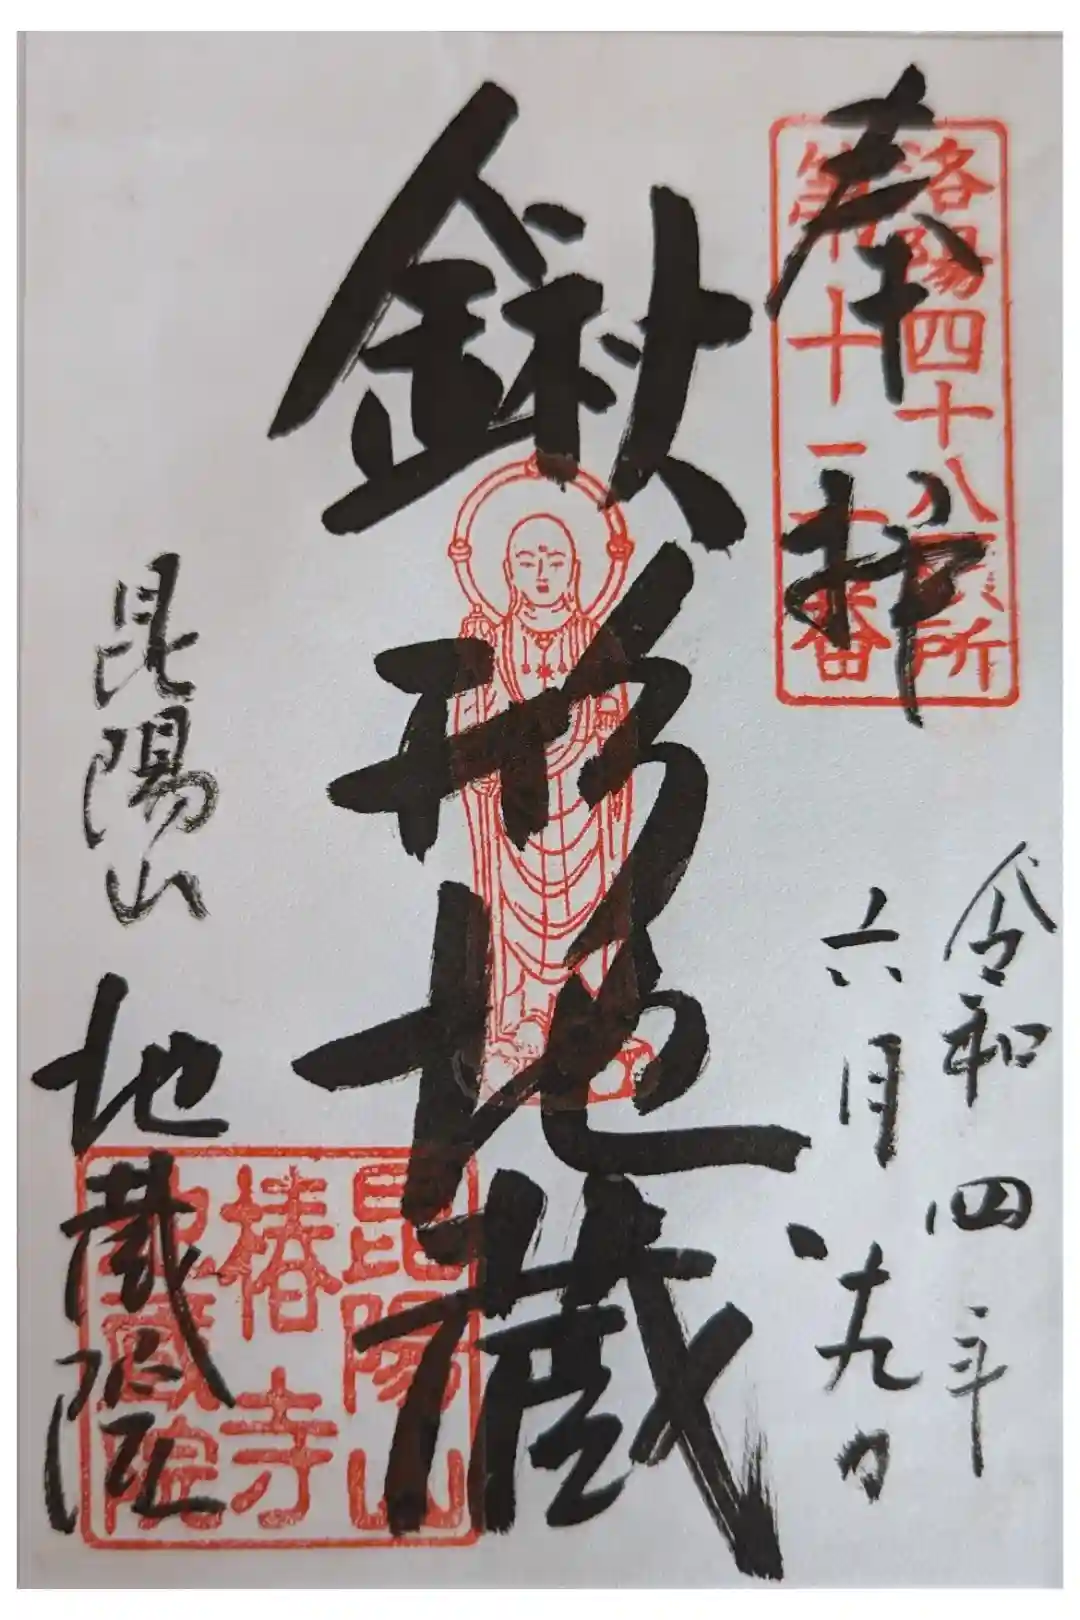 奉拝
洛陽四十八願所
第十二番
令和四年
六月十九日
鍬形地蔵
昆陽山
地蔵院
昆陽山
椿寺
地蔵院